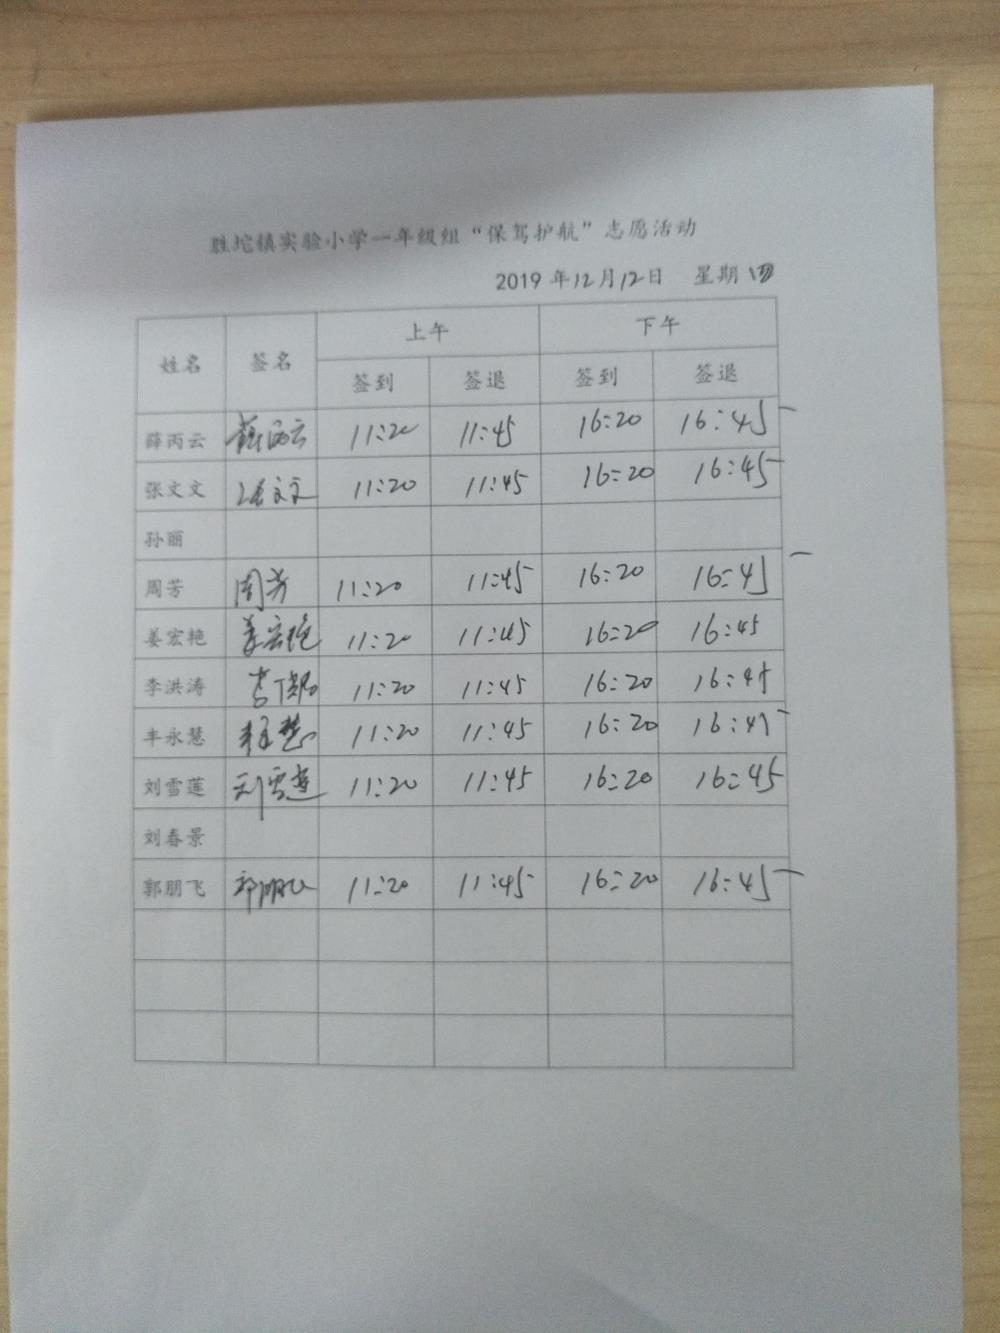 胜坨镇实验小学一年级组“保驾护航”志愿活动
2019 年12月12日 星期四
姓名 签名 上午 下午
签到 签退 签到 签退
薛丙云 薛丙云 11:20 11:45 16:20 16:45
张文文 张文文 11:20 11:45 16:20 16:45
孙丽
周芳 周芳 11:20 11:45 16:20 16:45
姜宏艳 姜宏艳 11:20 11:45 16:20 16:45
李洪涛 11:20 11:45 16:20 16:45
丰永慧 11:20 11:45 16:20 16:45
刘雪莲 刘雪莲 11:20 11:45 16:20 16:45
刘春景
郭朋飞 郭朋飞 11:20 11:45 16:20 16:45